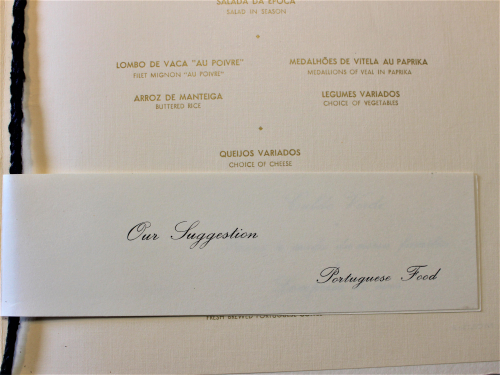 SALADA DA ÉPOCA
SALAD IN SEASON
LOMBO DE VACA "AU POIVRE"
FILET MIGNON "AU POIVRE"
ARROZ DE MANTEIGA
BUTTERED RICE
MEDALHÕES DE VITELA AU PAPRIKA
MEDALLIONS OF VEAL IN PAPRIKA
LEGUMES VARIADOS
CHOICE OF VEGETABLES
QUEIJOS VARIADOS
CHOICE OF CHEESE
Our Suggestion
Portuguese Food